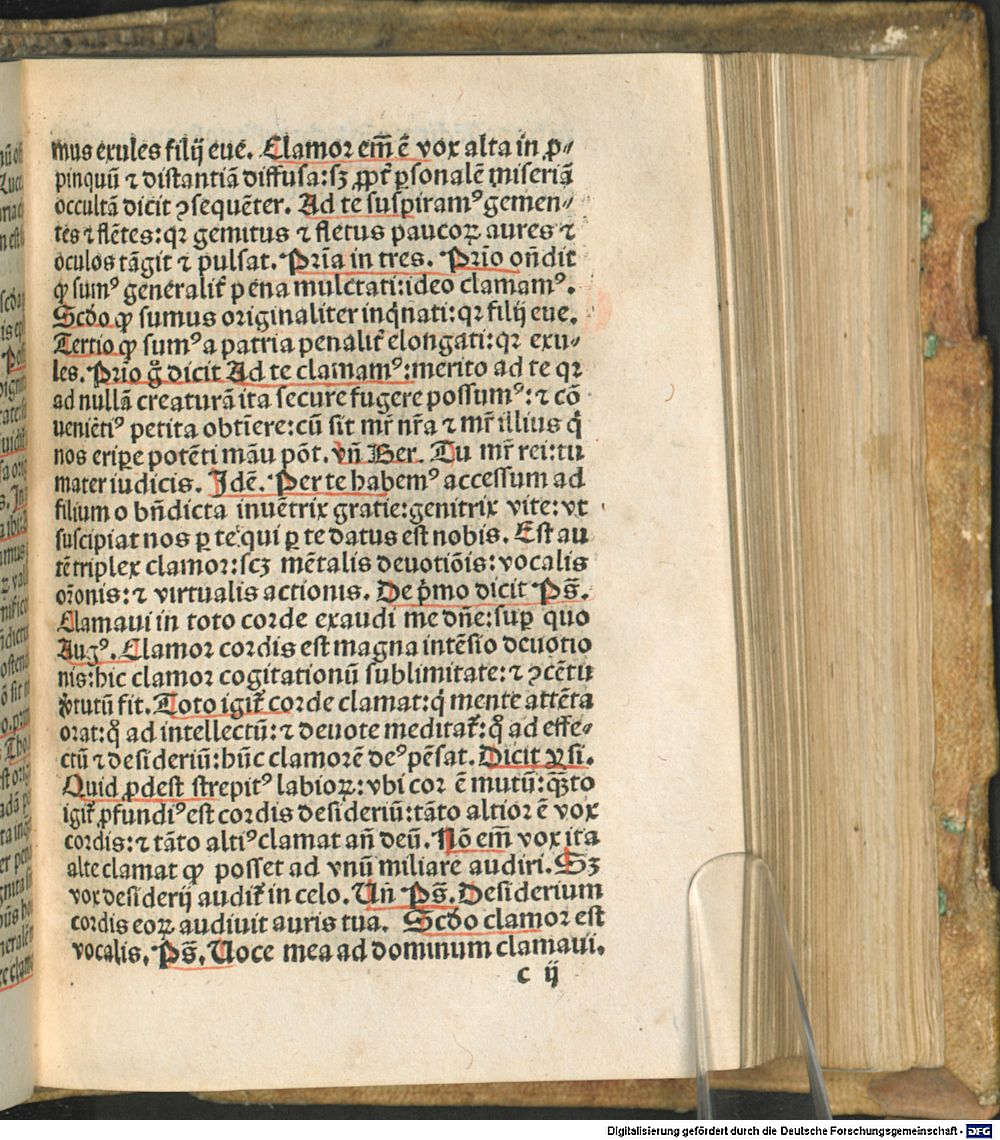 mus exules filij eue. Clamor em̄ ē vox alta in ꝓ⸗
pinquū ⁊ distantiā diffusa: sꝫ ꝓpt̄ ꝑsonalē miseriā
occultā dicit ꝯsequēter. Ad te suspiramꝰ gemen⸗
tes ⁊ flētes: qꝛ gemitus ⁊ fletus paucoꝝ aures ⁊
oculos tāgit ⁊ pulsat. Pria̅ in tres. Prio̅ on̄dit
ꝙ sumꝰ generalit̄ pena mulctati: ideo clamamꝰ.
Scd̄o ꝙ sumus originaliter inq̇nati: qꝛ filij eue.
Tertio ꝙ sumꝰ a patria penalit̄ elongati: qꝛ exu⸗
les. Prio̅ gͦ dicit Ad te clamamꝰ: merito ad te qꝛ
ad nullā creaturā ita secure fugere possumꝰ: ⁊ cō
ueniētiꝰ petita obtīere: cū sit mr̄ nr̄a ⁊ mr̄ illius q̇
nos eripe potēti māu pōt. vn̄ Ber. Tu mr̄ rei: tu
mater iudicis. Idē. Per te habemꝰ accessum ad
filium o bn̄dicta inuētrix gratie: genitrix vite: vt
suscipiat nos ꝑ te qui ꝑ te datus est nobis. Est au
tē triplex clamor: scꝫ mētalis deuotiōis: vocalis
orōnis: ⁊ virtualis actionis. De pͥmo dicit Ps̄.
Clamaui in toto corde exaudi me dn̄e: suꝑ quo
Augꝰ. Clamor cordis est magna intēsio deuotio
nis: hic clamor cogitationū sublimitate: ⁊ ꝯcētu
v̓tutū fit. Toto igit̄ corde clamat: q̇ mente attēta
orat: qͦ ad intellectū: ⁊ deuote meditat̄: qͦ ad effe⸗
ctū ⁊ desideriū: hūc clamorē deꝰ pēsat. Dicit ysi.
Quid ꝓdest strepitꝰ labioꝝ: vbi cor ē mutū: qᷓꝫto
igit̄ ꝓfundiꝰ est cordis desideriū: tāto altior ē vox
cordis: ⁊ tāto altiꝰ clamat an̄ deū. Nō em̄ vox ita
alte clamat ꝙ posset ad vnū miliare audiri. Sꝫ
vox desiderij audit̄ in celo. Un̄ Ps̄. Desiderium
cordis eoꝝ audiuit auris tua. Scd̄o clamor est
vocalis. Ps̄. Uoce mea ad dominum clamaui.
c ij
Digitalisierung gefördert durch die Deutsche Forschungsgemeinschaft - DFG